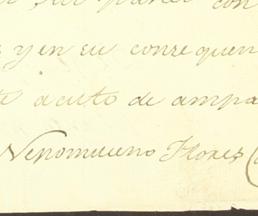 con
y en su consequen
acuto de ampa
Nepomuceno Florez